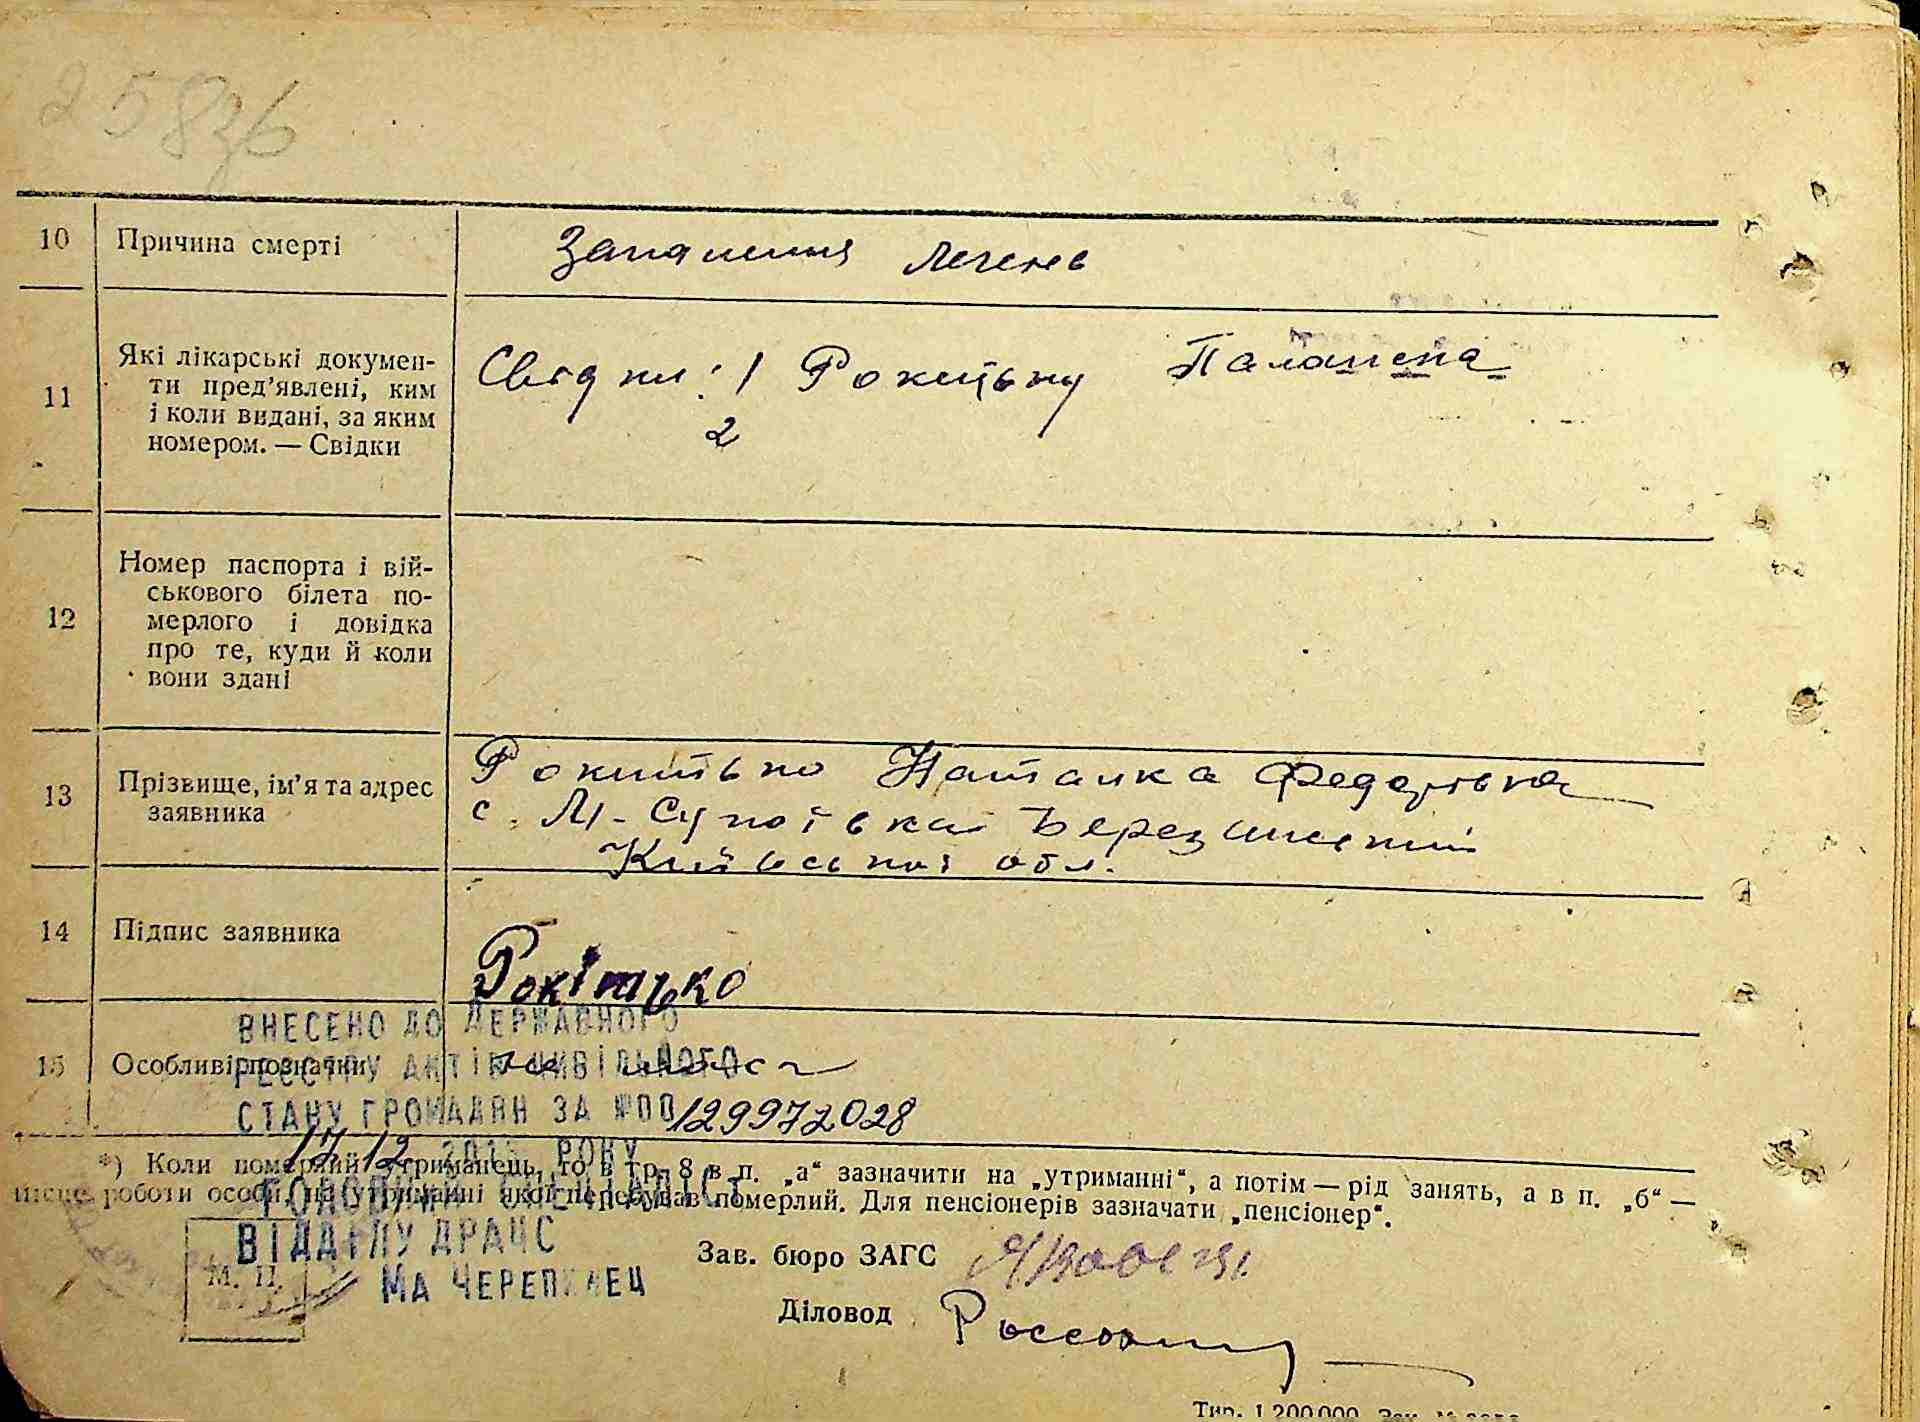 258зв
10 Причина смерті Запалення легень
11 Які лікарські докумен-
ти пред'явлені, ким
і коли видані, за яким
номером. — Свідки
Свідки: 1
2
12 Номер паспорта і вій-
ськового білета по-
мерлого і довідка
про те, куди й коли
вони здані
13 Прізвище, ім'я та адрес
заявника
Рокитько Наталка Федорівна
с. М-Супоївка
Київської обл.
14 Підпис заявника Рокітько
ВНЕСЕНО ДО ДЕРЖАВНОГО
15 Особливі позначки
РЕЄСТРУ АКТІВ ЦИВІЛЬНОГО
СТАНУ ГРОМАДЯН ЗА №00129972028
17 12 РОКУ
*) Коли померлий утриманець, то в гр. 8 в п. „а“ зазначити на „утриманні“, а потім — рід занять, а в п. „б“ —
місце роботи особи, на утриманні якої перебував померлий. Для пенсіонерів зазначати „пенсіонер“.
ГОЛОВНИЙ СПЕЦІАЛІСТ
ВІДДІЛУ ДРАЦС
Зав. бюро ЗАГС
М. П.
МА ЧЕРЕПИНЕЦ
Діловод
Тир. 1.200.000